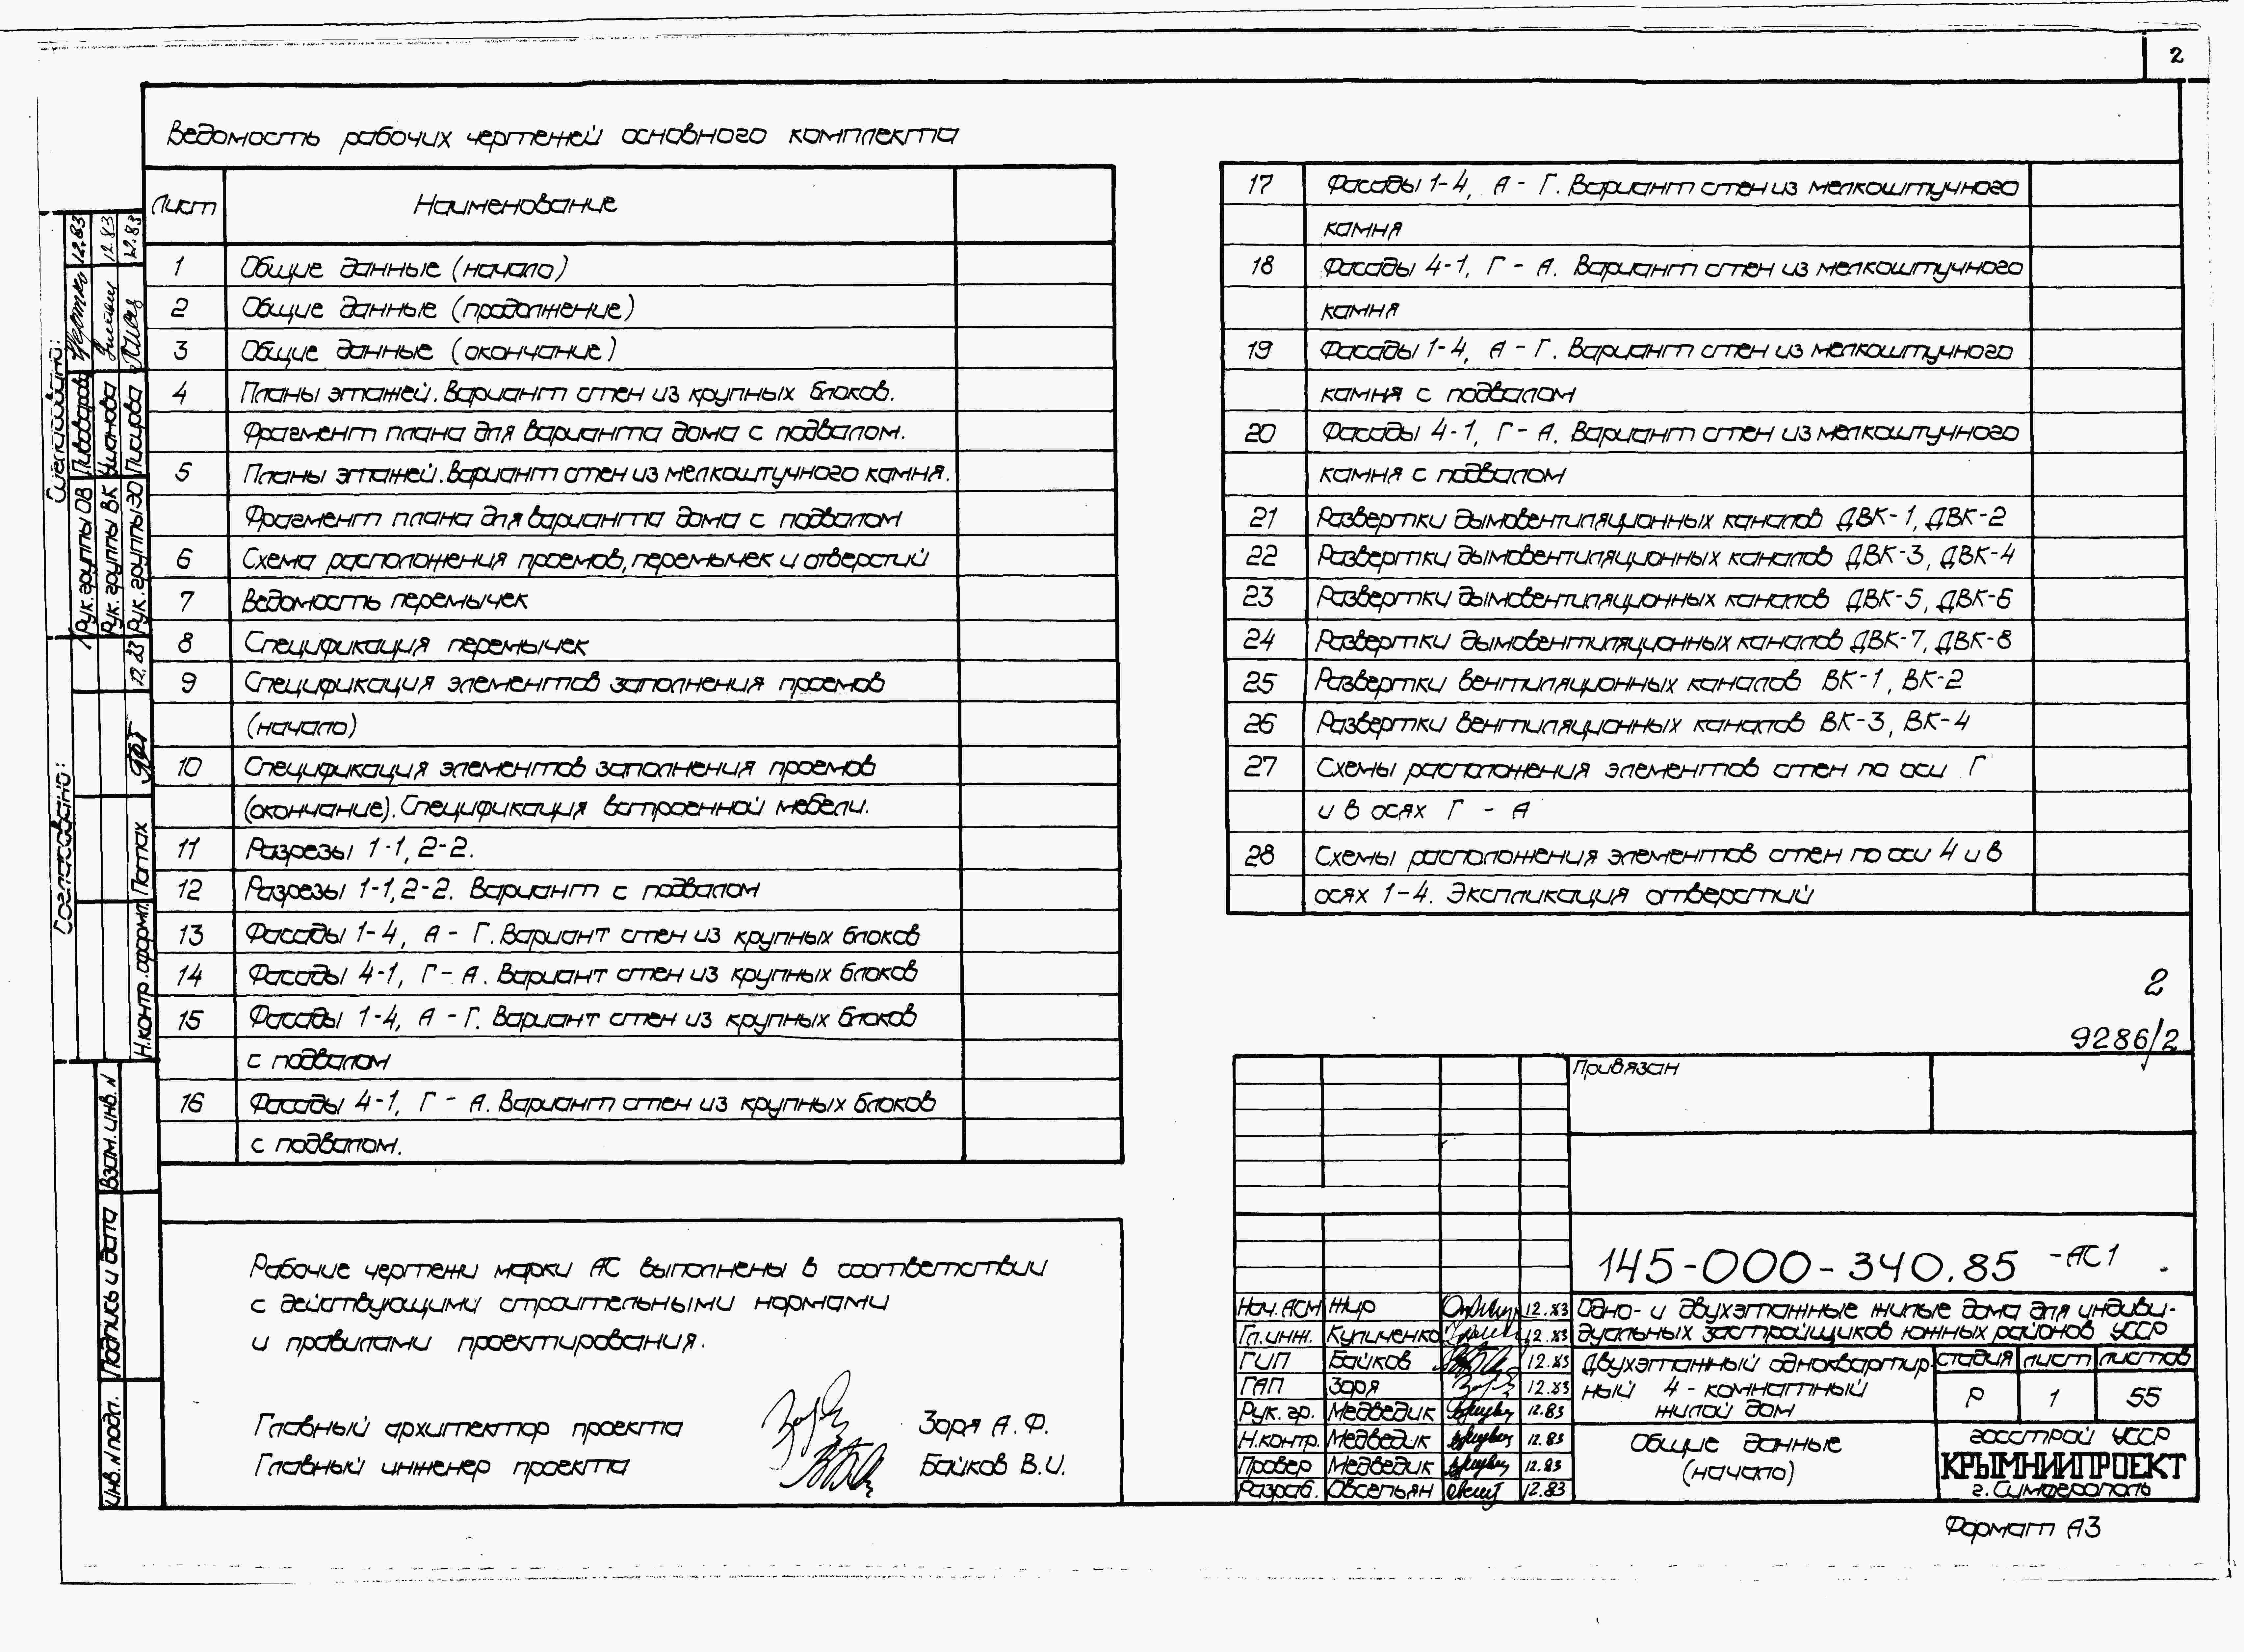 2
Ведомость рабочих чертежей основного комплекта
Лист Наименование
1 Общие данные (начало)
2 Общие данные (продолжение)
3 Общие данные (окончание)
4 Планы этажей. Вариант стен из крупных блоков.
Фрагмент плана для варианта дома с подвалом.
5 Планы этажей. Вариант стен из мелкоштучного камня.
Фрагмент плана для варианта дома с подвалом
6 Схема расположения проемов, перемычек и отверстий
7 Ведомость перемычек
8 Спецификация перемычек
9 Спецификация элементов заполнения проемов
(начало)
10 Спецификация элементов заполнения проемов
(окончание). Спецификация встроенной мебели.
11 Разрезы 1-1, 2-2.
12 Разрезы 1-1, 2-2. Вариант с подвалом
13 Фасады 1-4, А - Г. Вариант стен из крупных блоков
14 Фасады 4-1, Г - А. Вариант стен из крупных блоков
15 Фасады 1-4, А - Г. Вариант стен из крупных блоков
с подвалом
16 Фасады 4-1, Г - А. Вариант стен из крупных блоков
с подвалом.
17 Фасады 1-4, А - Г. Вариант стен из мелкоштучного
камня
18 Фасады 4-1, Г - А. Вариант стен из мелкоштучного
камня
19 Фасады 1-4, А - Г. Вариант стен из мелкоштучного
камня с подвалом
20 Фасады 4-1, Г - А. Вариант стен из мелкоштучного
камня с подвалом
21 Развертки дымовентиляционных каналов ДВК-1, ДВК-2
22 Развертки дымовентиляционных каналов ДВК-3, ДВК-4
23 Развертки дымовентиляционных каналов ДВК-5, ДВК-6
24 Развертки дымовентиляционных каналов ДВК-7, ДВК-8
25 Развертки вентиляционных каналов ВК-1, ВК-2
26 Развертки вентиляционных каналов ВК-3, ВК-4
27 Схемы расположения элементов стен по оси Г
и в осях Г - А
28 Схемы расположения элементов стен по оси 4 и в
осях 1-4. Экспликация отверстий
2
9286/2
Рабочие чертежи марки АС выполнены в соответствии
с действующими строительными нормами
и правилами проектирования.
Главный архитектор проекта Зоря А. Ф.
Главный инженер проекта Байков В.И.
Привязан
145-000-340.85 -АС1
Нач. АСМ Жир 12.83
Гл.инж. Куличенко 12.83
ГИП Байков 12.83
ГАП Зоря 12.83
Рук. гр. Медведик 12.83
Н.контр. Медведик 12.83
Провер Медведик 12.83
Разраб. Овсепьян 12.83
Одно- и двухэтажные жилые дома для индиви-
дуальных застройщиков южных районов УССР
Двухэтажный одноквартир-
ный 4-комнатный
жилой дом
стадия лист листов
Р 1 55
Общие данные
(начало)
госстрой УССР
КРЫМНИИПРОЕКТ
г. Симферополь
Формат А3
Согласовано:
Рук. группы ОВ Пивоваров 12.83
Рук. группы ВК 12.83
Рук. группы ЭО Писцова 12.83
Согласовано:
Н.контр. оформл. Потах 12.83
Взам. инв. N
Подпись и дата
Инв. N подл.